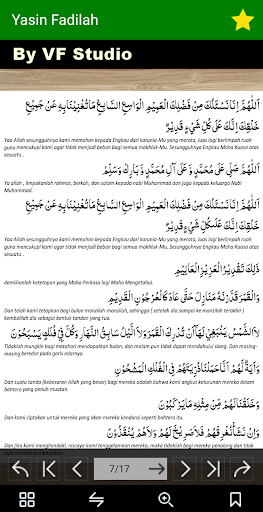 Yasin Fadilah
By VF Studio
اَللّٰهُمَّ اِنَّا نَسْئَلُكَ مِنْ فَضْلِكَ الْعَمِيْمِ الْوَاسِعِ السَّابِغِ مَا تُغْنِيْنَا بِهِ عَنْ جَمِيْعِ
خَلْقِكَ اِنَّكَ عَلٰى كُلِّ شَيْءٍ قَدِيْرٌ
Yaa Allah sesungguhnya kami memohon kepada Engkau dari karunia-Mu yang merata, luas lagi berlimpah ruah
guna mencukupi kami agar tidak menjadi beban bagi semua makhluk-Mu. Sesungguhnya Engkau Maha Kuasa atas
sesuatu .
اَللّٰهُمَّ صَلِّ عَلٰى مُحَمَّدٍ وَ عَلٰى اٰلِ مُحَمَّدٍ وَ بَارِكْ وَسَلِّمْ
Ya allah , limpakanlah rahmat, berkah, dan salam kepada nabi Muhammad dan juga kepada keluarga Nabi
Muhammad
اَللّٰهُمَّ اِنَّا نَسْئَلُكَ مِنْ فَضْلِكَ الْعَمِيْمِ الْوَاسِعِ السَّابِغِ مَا تُغْنِيْنَا بِهِ عَنْ جَمِيْعِ
خَلْقِكَ اِنَّكَ عَلٰى كُلِّ شَيْءٍ قَدِيْرٌ
Yaa Allah sesungguhnya kami memohon kepada Engkau dari karunia-Mu yang merata, luas lagi berlimpah ruah
guna mencukupi kami agar tidak menjadi beban bagi semua makhluk-Mu. Sesungguhnya Engkau Maha Kuasa atas
sesuatu .
ذٰلِكَ تَقْدِيْرُ الْعَزِيْزِ الْعَلِيْمِ
demikianlah ketetapan yang Maha Perkasa lagi Maha Mengetahui.
وَالْقَمَرَ قَدَّرْنٰهُ مَنَازِلَ حَتّٰى عَادَ كَالْعُرْجُوْنِ الْقَدِيْمِ
Dan telah kami tetapkan bagi bulan manzilah manzilah, sehingga ( setelah dia sampai ke manzilah terakhir )
kembalilah dia sebagai bentuk tandan yang tua.
لَا الشَّمْسُ يَنْبَغِيْ لَهَا اَنْ تُدْرِكَ الْقَمَرَ وَلَا الَّيْلُ سَابِقُ النَّهَارِ وَكُلٌّ فِيْ فَلَكٍ يَسْبَحُوْنَ
Tidaklah mungkin bagi matahari mendapatkan bulan, dan malam pun tidak dapat mendahului siang. Dan masing-
masing beredar pada garis edarnya.
وَاٰيَةٌ لَّهُمْ اَنَّا حَمَلْنَا ذُرِّيَّتَهُمْ فِى الْفُلْكِ الْمَشْحُوْنِ
Dan suatu tanda (kebesaran Allah yang besar) bagi mereka adalah bahwa kami angkut keturunan mereka dalam
bahtera yang penuh muatan.
وَخَلَقْنَا لَهُمْ مِّنْ مِّثْلِهٖ مَايَرْكَبُوْنَ
Dan kami ciptakan untuk mereka yang akan mereka kendarai seperti bahtera itu.
وَاِنْ نَّشَأْ نُغْرِقْهُمْ فَلَا صَرِيْخَ لَهُمْ وَلَا هُمْ يُنْقَذُوْنَ
Dan jika kami menghendaki, niscaya kami tenggelamkan mereka, maka tidaklah bagi mereka penolong dan tidak
7/17